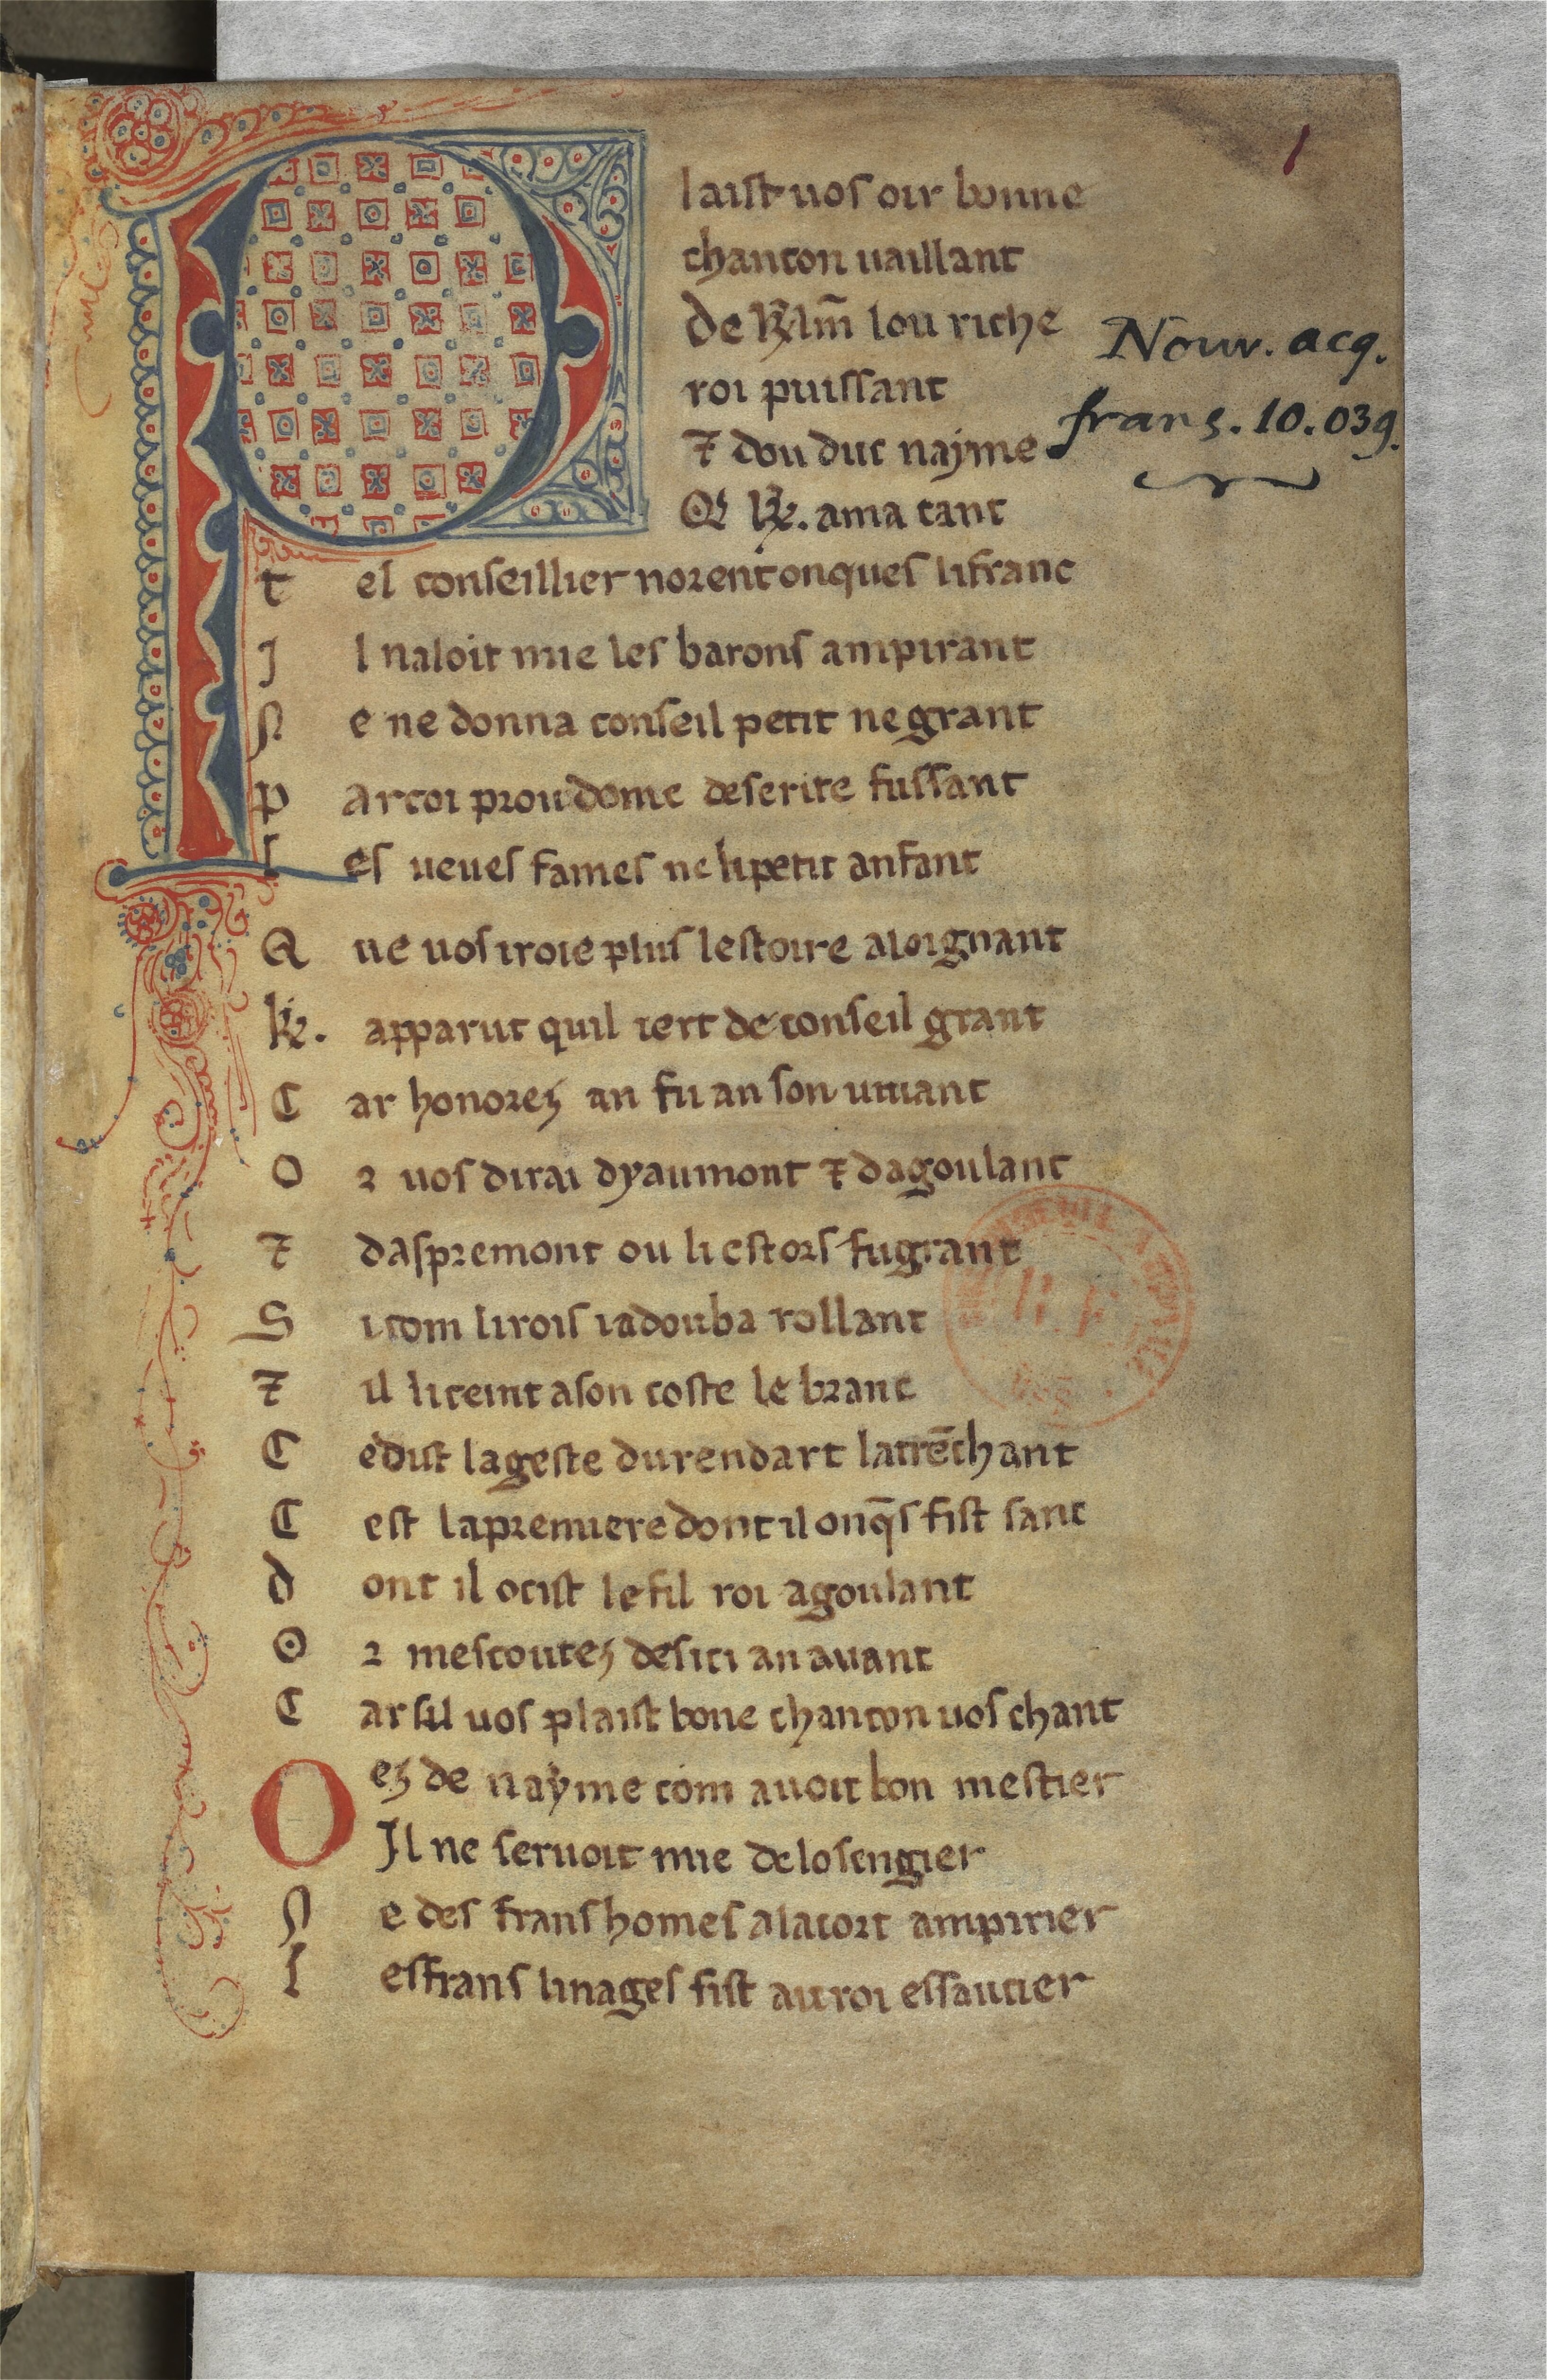 1
Plaist uos oir bonne
chancon uaillant
de kłm̄ lou riche
roi puissant
⁊ dou duc najme
Qͥ kł. ama tant
Nouv. acq.
frans. 10.039.
t el conseillier norent onques li franc
J l naloit mie les barons ampirant
N e ne donna conseil petit ne grant
p ar coi proudome deserite fussant
l es ueues fames ne li petit anfant
Q ue uos iroie plus lestoire aloignant
kł. apparut quil iert de conseil grant
C ar honorez an fu an son uiuant
O r uos dirai dyaumont ⁊ dagoulant
⁊ daspremont ou li estors fu grant
S i com li rois i adouba rollant
⁊ il li ceint a son coste le branc
C e dist la geste durendart la trēchant
C est la premiere dont il onq̄s fist sanc
d ont il ocist le fil roi agoulant
O r mescoutez desici an auant
C ar sil uos plaist bone chancon uos chant
O ez de naẏme com auoit bon mestier
Jl ne seruoit mie de losengier
N e des frans homes a la cort ampirier
l es frans linages fist au roi essaucier